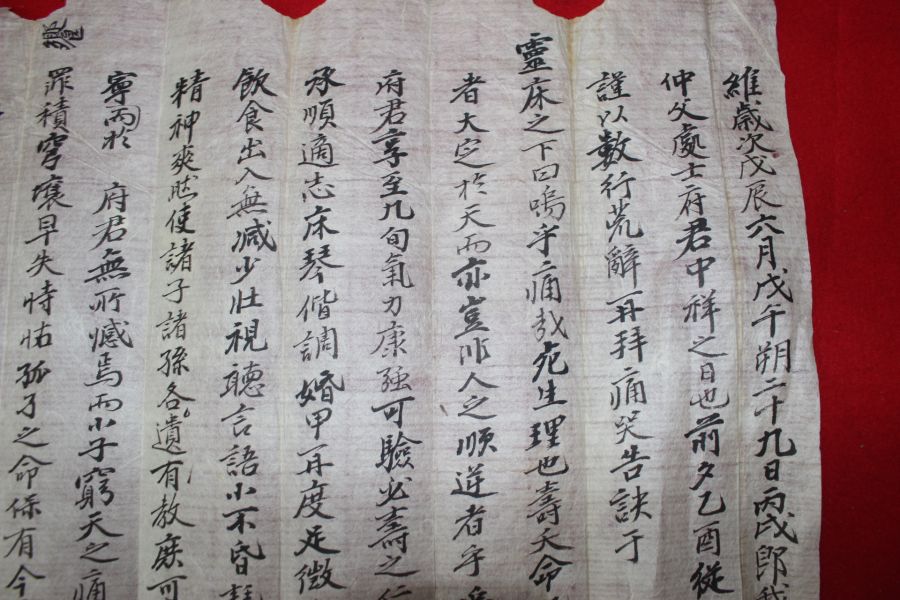 維歲次戊辰六月戊午朔二十九日丙戌卽我
仲父處士府君中祥之日也前夕乙酉從
謹以數行荒辭再拜痛哭告訣于
靈床之下曰嗚乎痛哉死生理也壽夭命
者大定於天而亦豈非人之順逆者乎
府君享至九旬氣力康强可驗必壽之仁
承順適志床琴偕調婚甲再度足徵
飮食出入無减少壯視聽言語小不昏
精神爽然使諸子諸孫各遺有敎庶可
寧而於 府君無所憾焉而小子窮天之痛
罪積穹壤早失恃怙孤子之命保有今